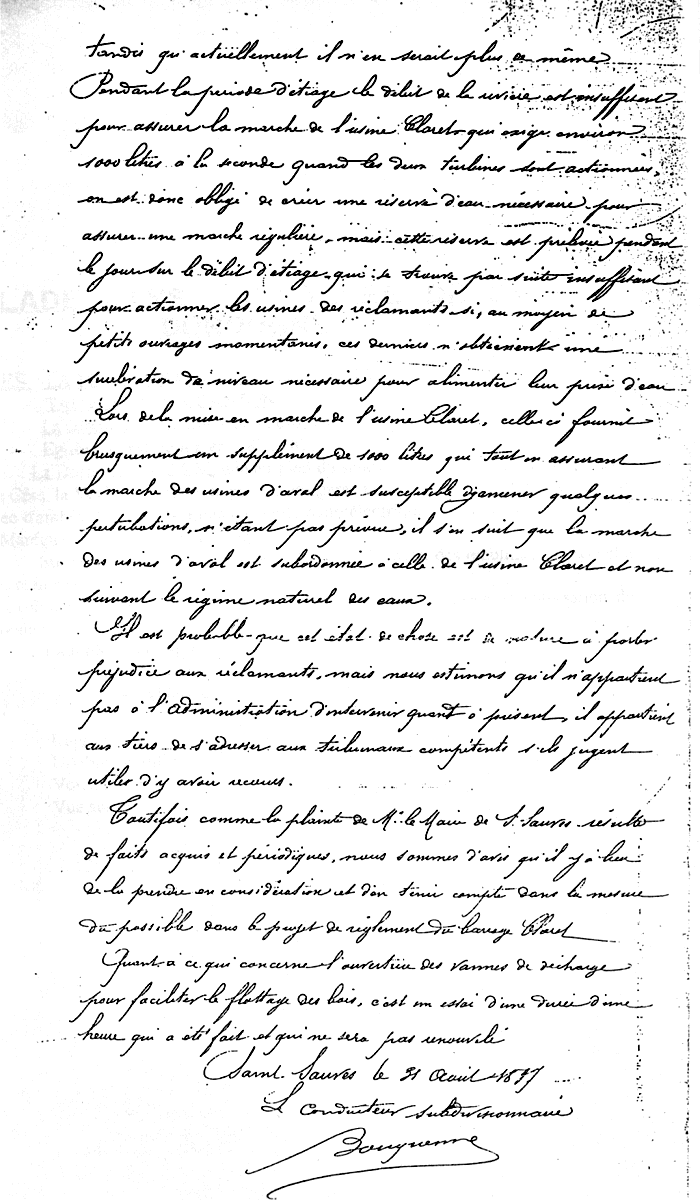 tandis qu'actuellement il n'en serait plus de même
Pendant la periode d'étiage le débit de la rivière est insuffisant
pour assurer la marche de l'usine Claret qui exige environ
1000 litres à la seconde quand les deux turbines sont actionnées,
on est donc obligé de créer une réserve d'eau nécessaire pour
assurer une marche régulière, mais cette réserve est prélevée pendant
le jour sur le débit d'étiage qui se trouve par suite insuffisant
pour actionner les usines des réclamants si, au moyen de
petits ouvrages momentanés, ces derniers n'obtiennent une
surélévation de niveau nécessaire pour alimenter leur prise d'eau
Lors de la mise en marche de l'usine Claret, celle ci fournit
brusquement un supplément de 1000 litres qui tout en assurant
la marche des usines d'aval est susceptible d'amener quelques
perturbations, n'étant pas prévue, il s'en suit que la marche
des usines d'aval est subordonnée à celle de l'usine Claret et non
suivant le régime naturel des eaux.
Il est probable que cet état de chose est de nature à porter
préjudice aux réclamants, mais nous estimons qu'il n'appartient
pas à l'administration d'intervenir quant à présent, il appartient
aux tiers de s'adresser aux tribunaux compétents s'ils jugent
utiles d'y avoir recours.
Toutefois comme la plainte de Mr le Maire de St Sauves résulte
de faits acquis et périodiques, nous sommes d'avis qu'il y a lieu
de la prendre en considération et d'en tenir compte dans la mesure
du possible dans le projet de règlement du barrage Claret
Quant à ce qui concerne l'ouverture des vannes de décharge
pour faciliter le flottage des bois, c'est un essai d'une durée d'une
heure qui a été fait et qui ne sera pas renouvelé
Saint Sauves le 31 Août 1897
Le conducteur subdivisionnaire